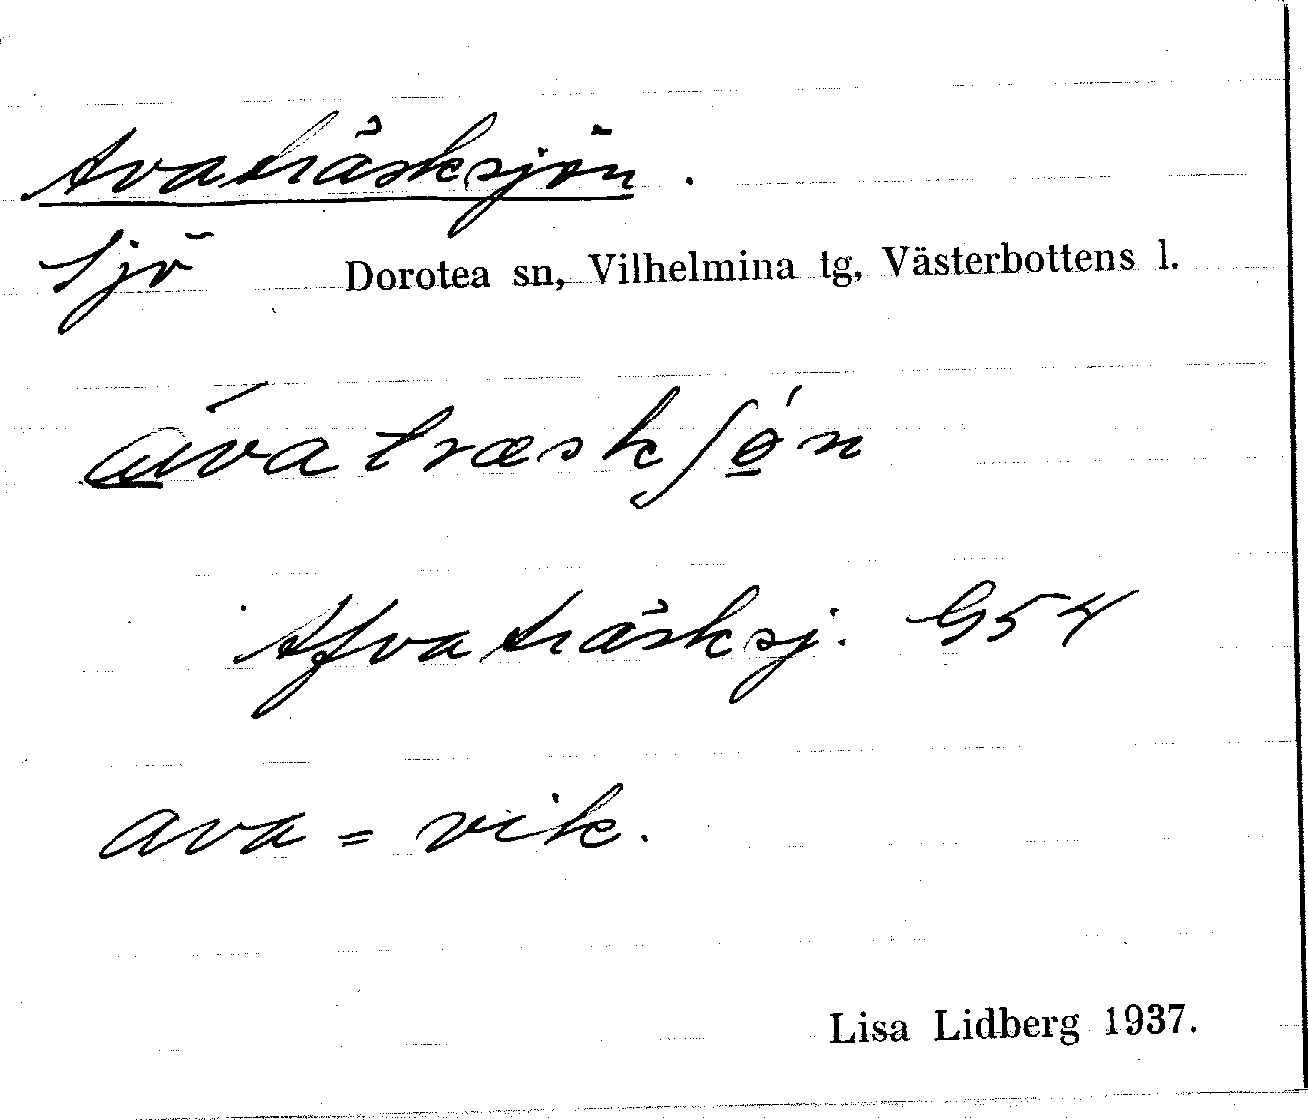 Avaträsksjön.
Sjö Dorotea sn, Vilhelmina tg, Västerbottens l.
ávatræskʃǿn
Afvaträsksj. G54
ava = vik.
Lisa Lidberg 1937.